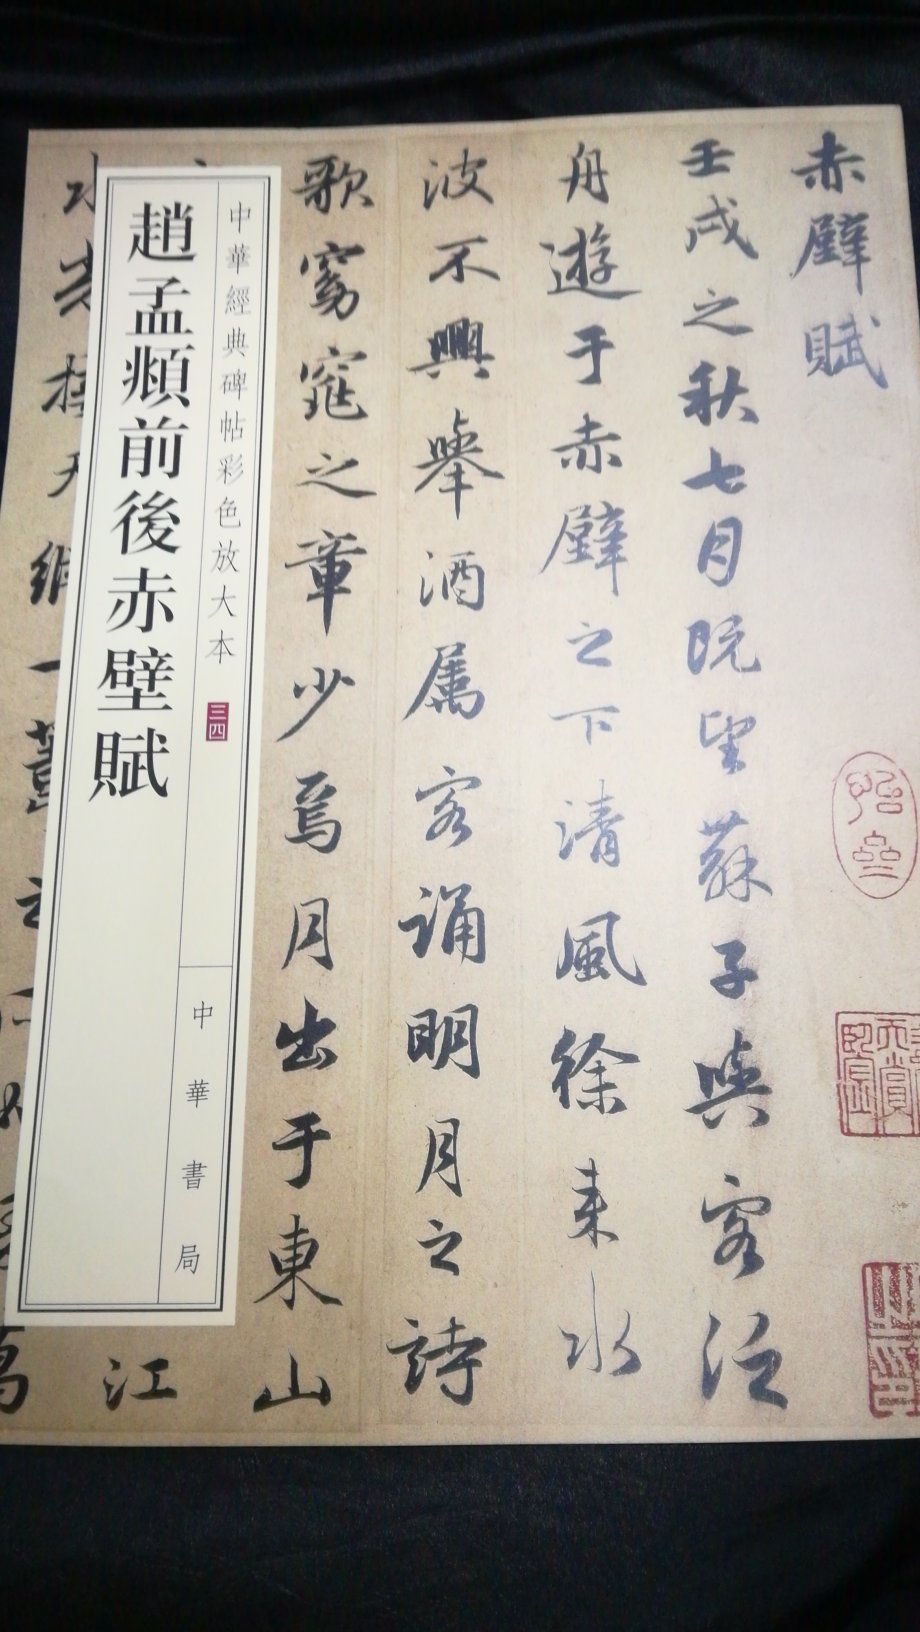 赤壁賦
壬戌之秋七月既望蘇子與客泛
舟遊于赤壁之下清風徐来水
波不興舉酒属客誦明月之詩
歌窈窕之章少焉月出于東山
江
中華經典碑帖彩色放大本
三四
中華書局
趙孟頫前後赤壁賦